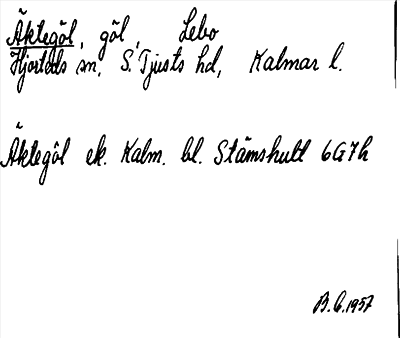 Äktegöl, göl, Lebo
Hjorteds sn, S. Tjusts hd, Kalmar l.
Äktegöl ek. Kalm. bl. Stämshult 6G7h
B.G. 1957